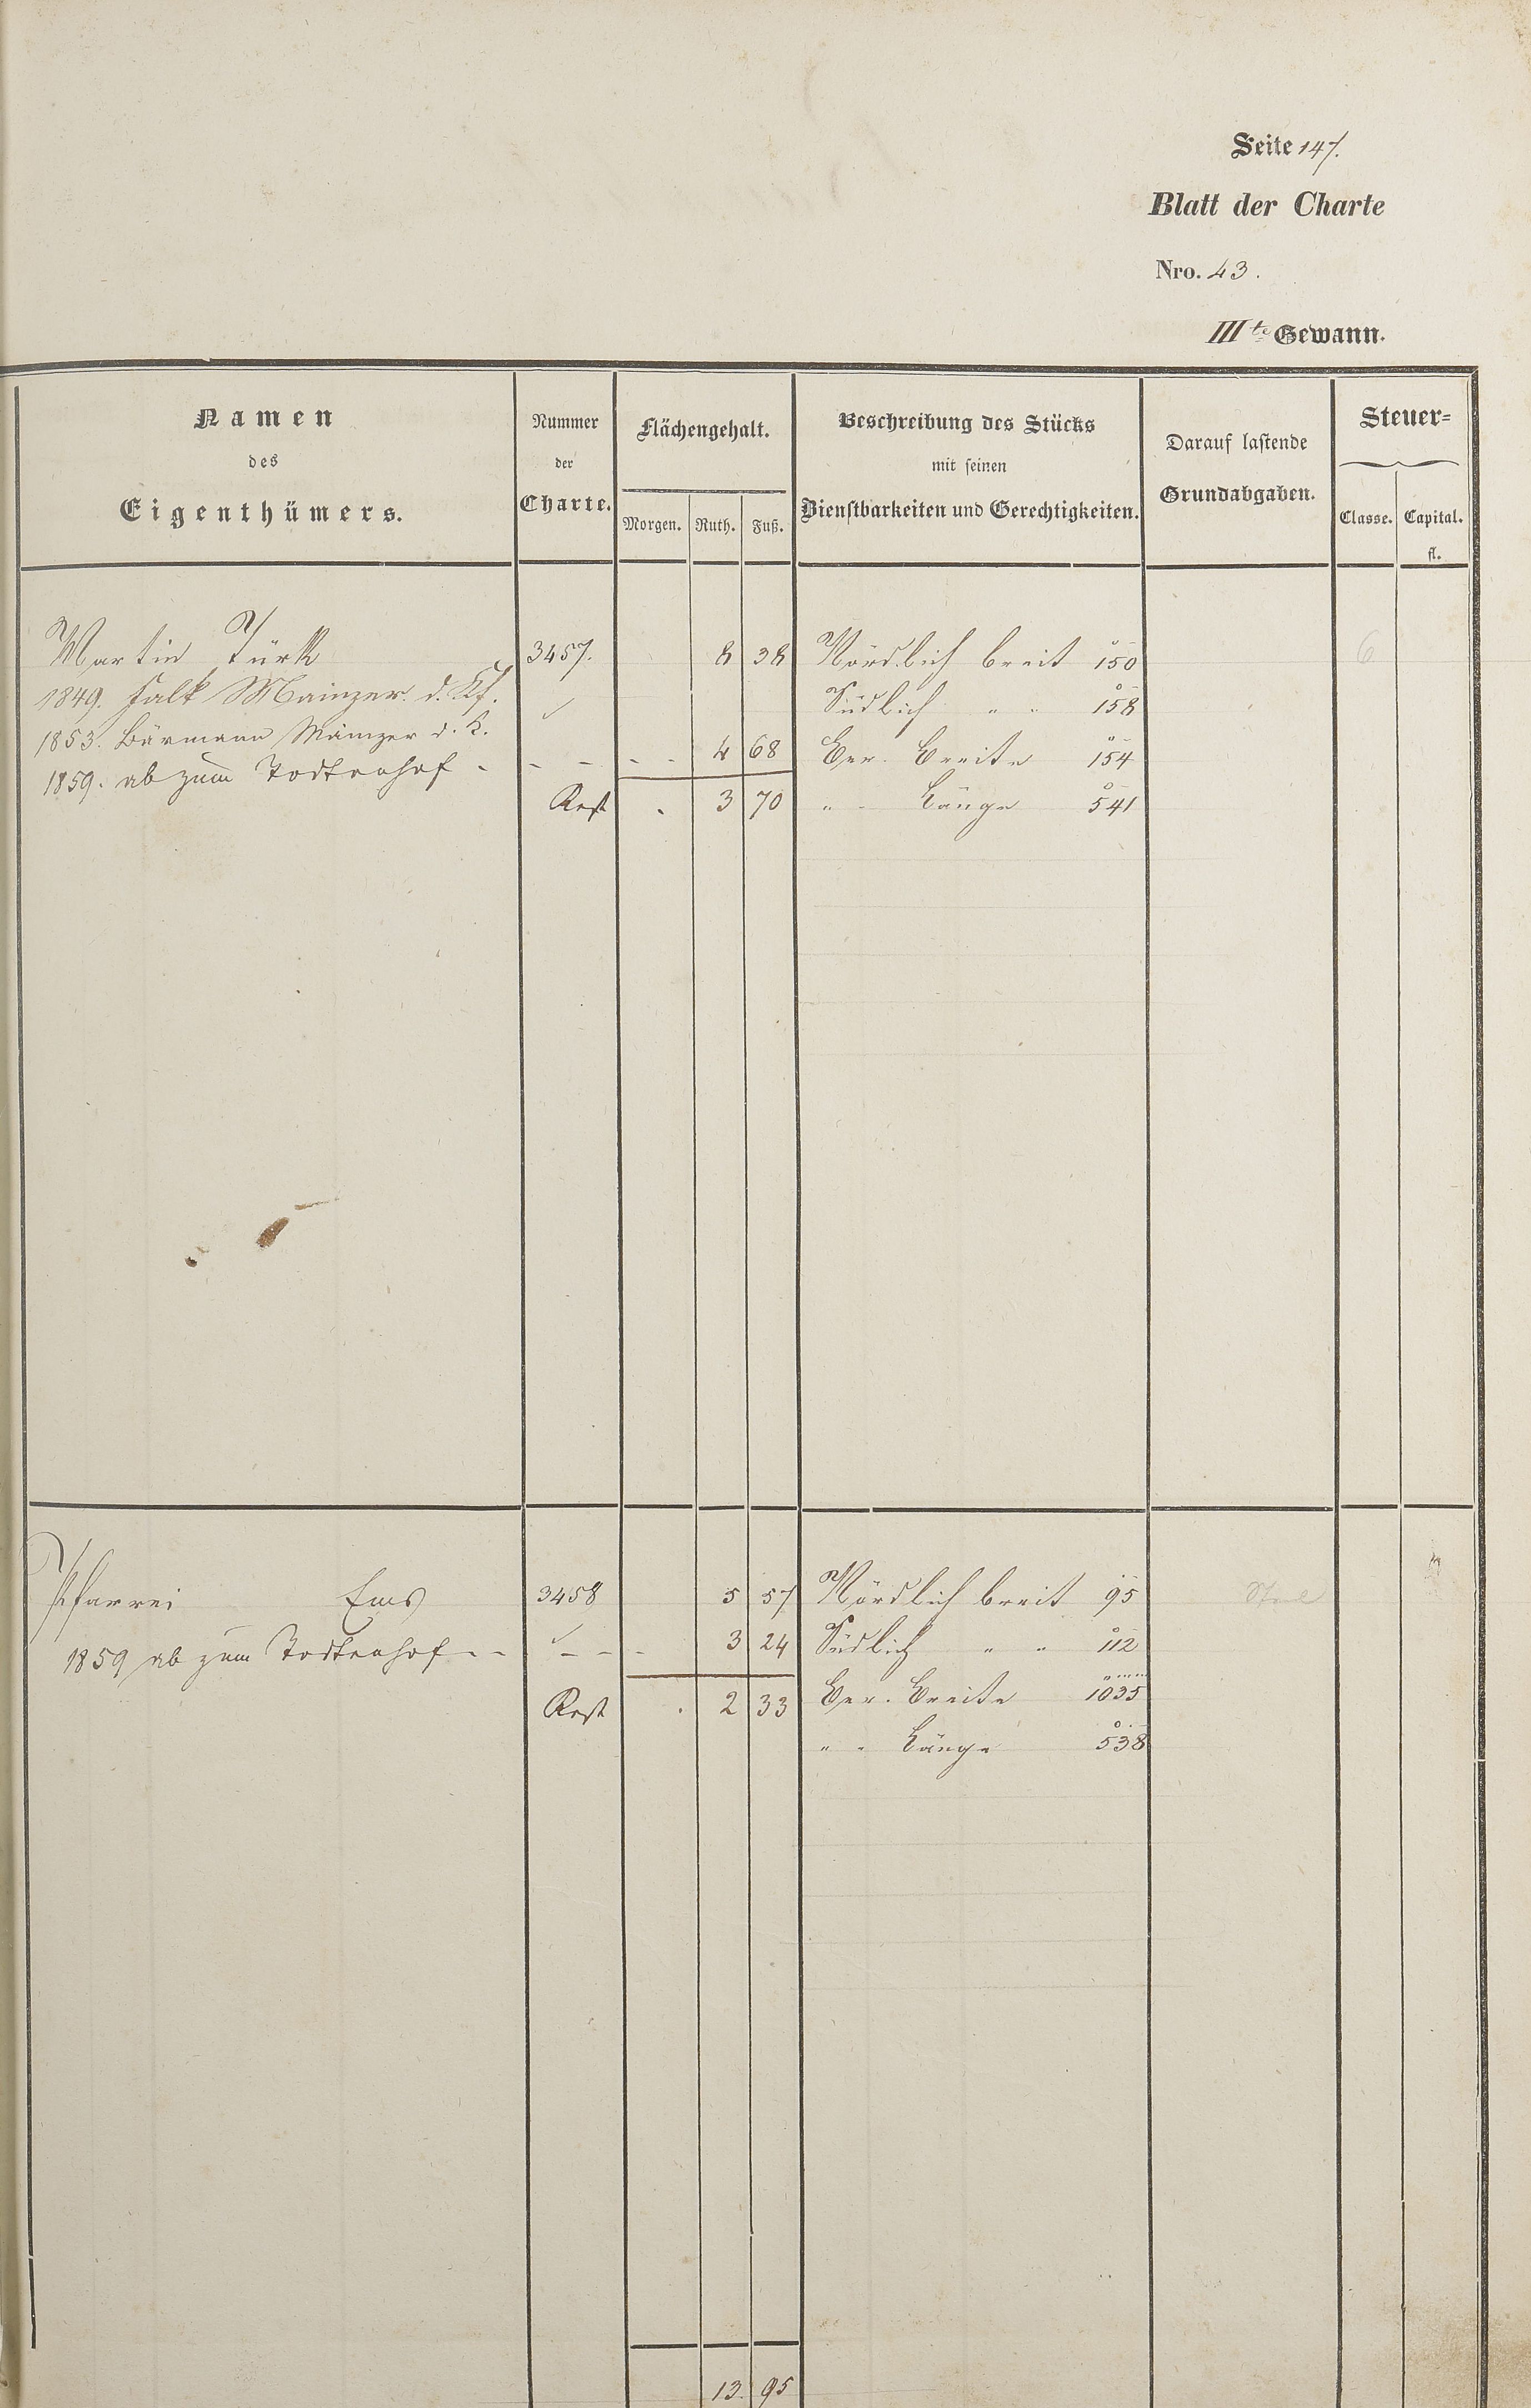 Seite 147.
Blatt der Charte
Nro. 43.
IIIte Gewann.
Namen
des
Eigenthümers.
Nummer
der
Charte.
Flächengehalt.
Morgen. Ruth. Fuß.
Beschreibung des Stücks
mit seinen
Dienstbarkeiten und Gerechtigkeiten.
Darauf lastende
Grundabgaben.
Steuer=
Classe. Capital.
fl.
Martin Türk 3457. 8 38 Nördlich breit 150 6
1849. Falk Mainzer d. Kf. Südlich " " 158
1853. Bärmann Mainzer d. K.
1859. ab zum Todtenhof - - - - - 4 68 Ber. Breite 154
Rest . 3 70 " " Länge 541
Pfarrei Ems 3458 5 57 Nördlich breit 95
1859 ab zum Todtenhof - - - - - 3 24 Südlich " " 112
Rest . 2 33 Ber. Breite 1035
" " Länge 538
13. 95